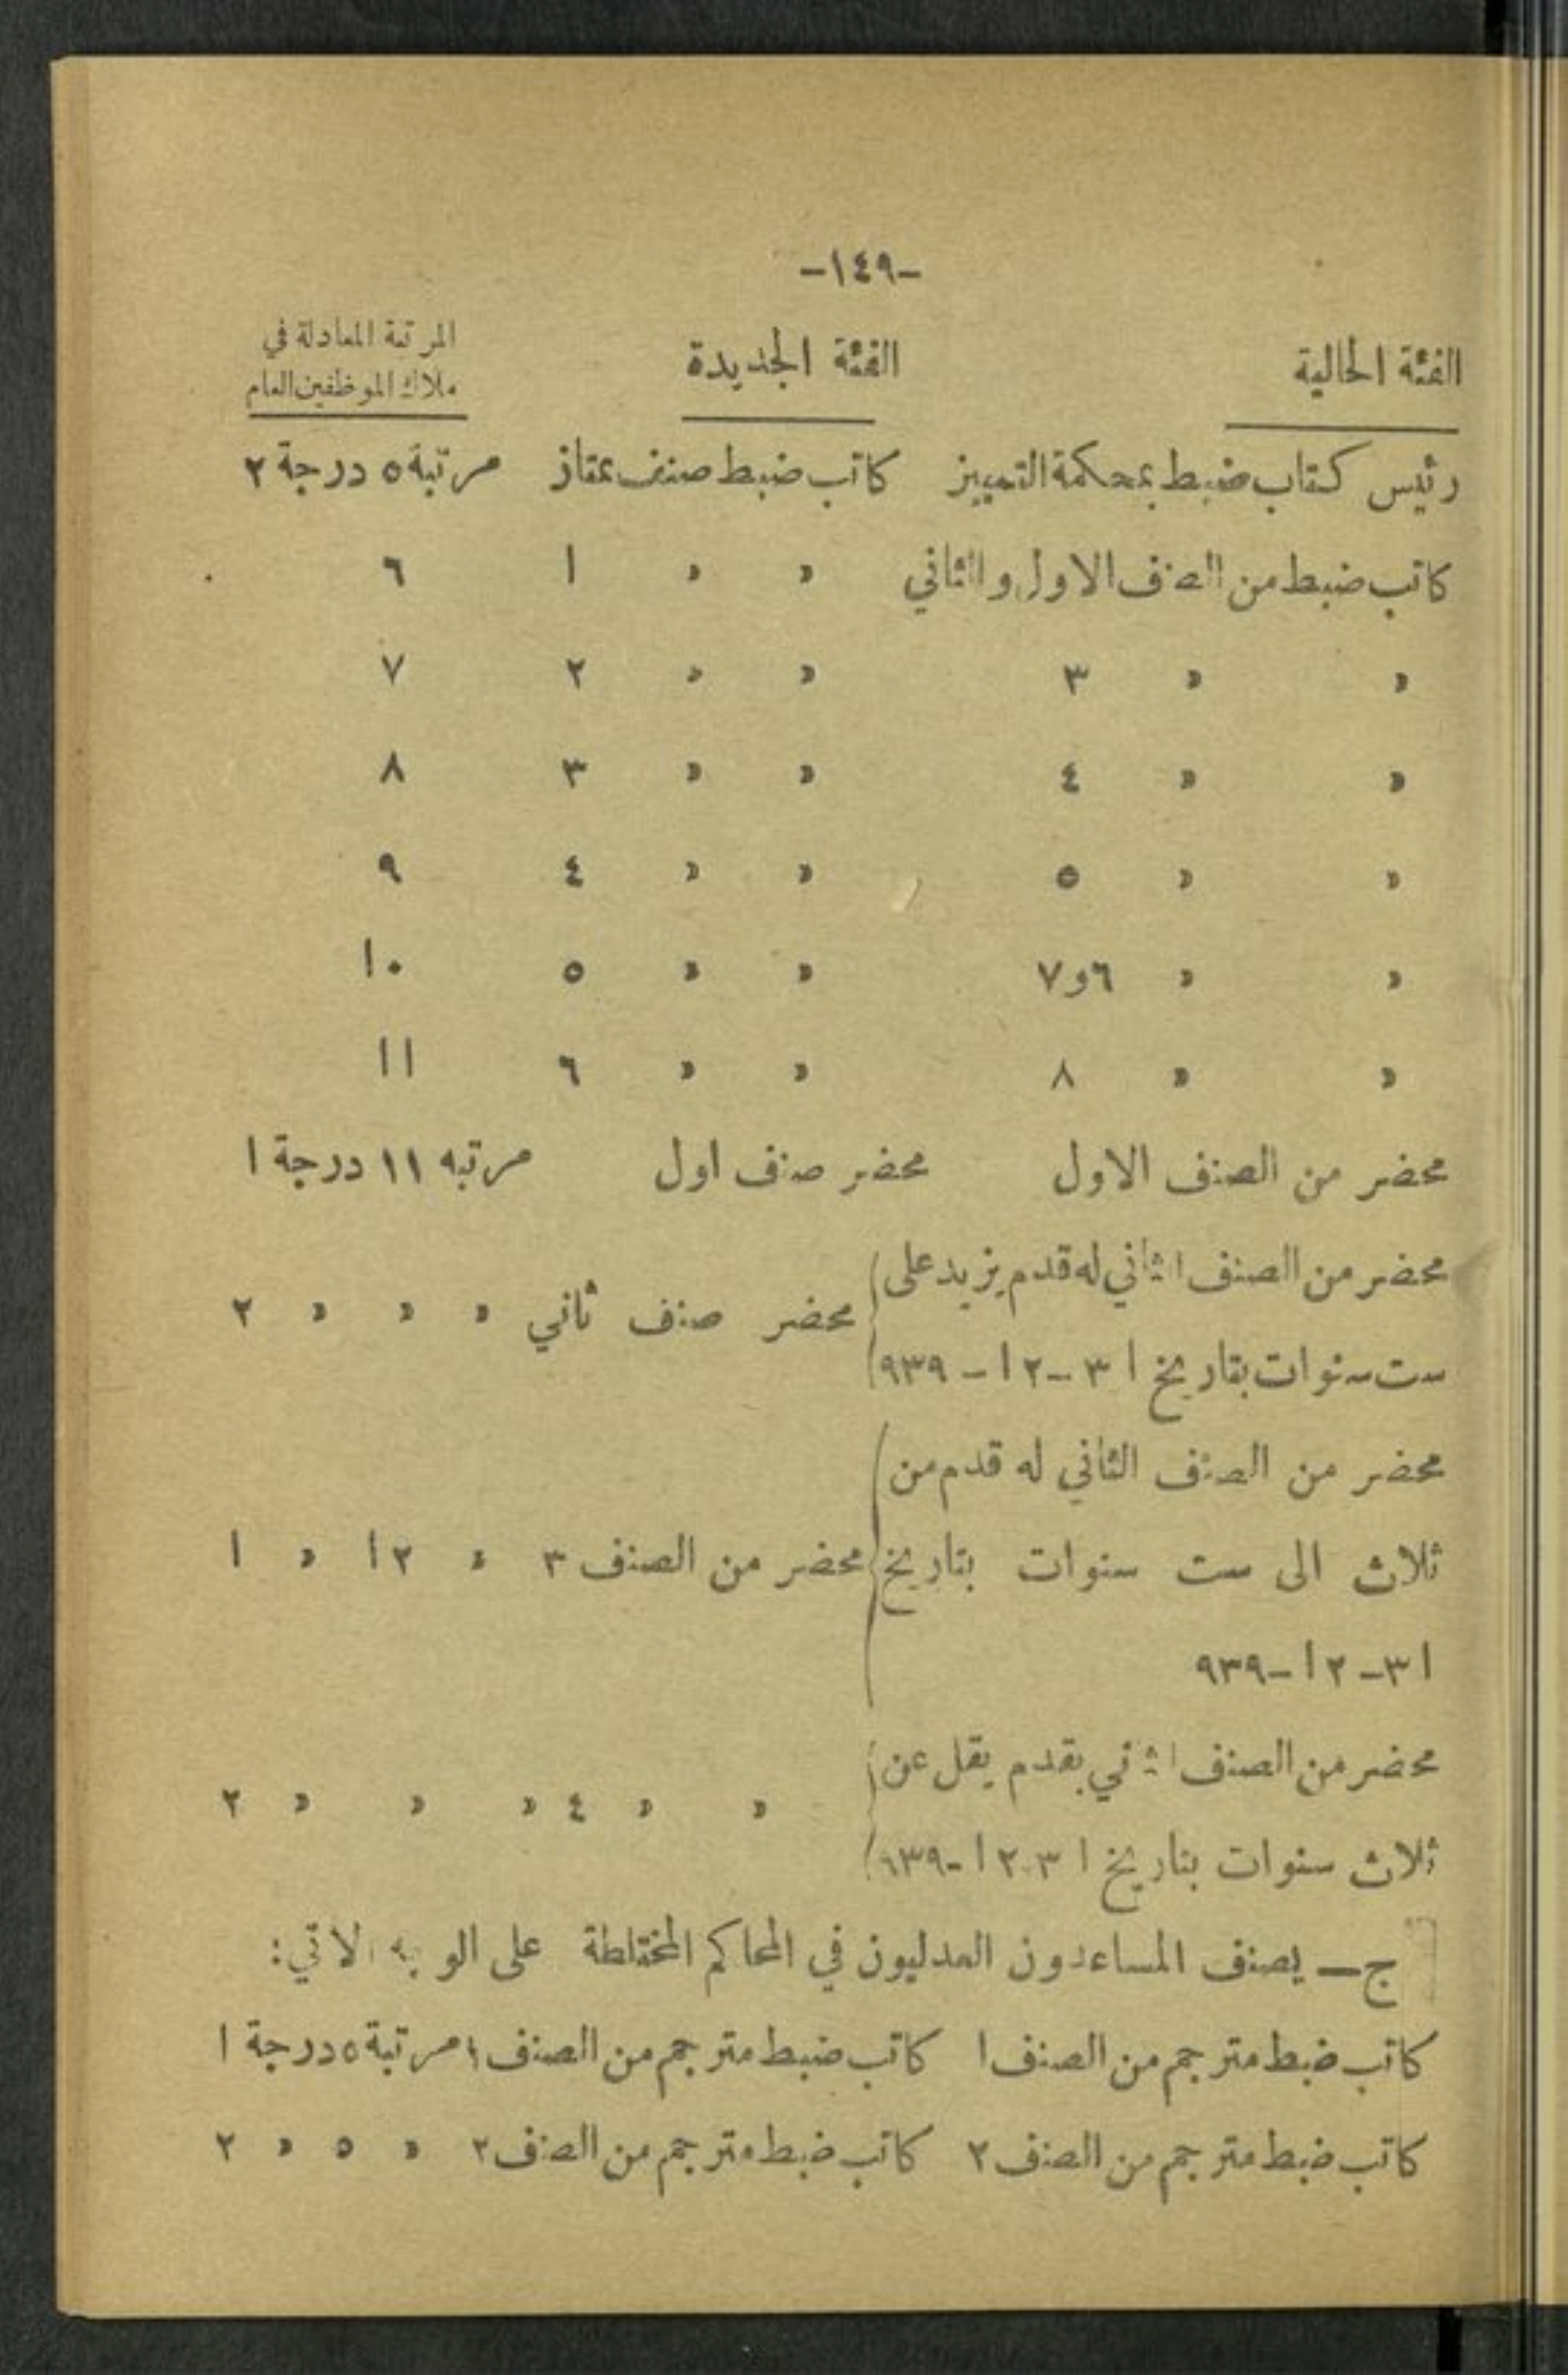 -١٤٩-
الفئة الحالية الفئة الجديدة المرتبة المعادلة في
ملاك الموظفين العام
رئيس كتاب ضبط بمحكمة التمييز كاتب ضبط صنف ممتاز مرتبة ٥ درجة ٢
كاتب ضبط من الصنف الاول والثاني » » ١ ٦
» » ٣ » » ٢ ٧
» » ٤ » » ٣ ٨
» » ٥ » » ٤ ٩
» » ٦و٧ » » ٥ ١٠
» » ٨ » » ٦ ١١
محضر من الصنف الاول محضر صنف اول مرتبه ١١ درجة ١
محضر من الصنف الثاني له قدم يزيد على
محضر صنف ثاني » » » ٢
ست سنوات بتاريخ ٣١-١٢-٩٣٩
محضر من الصنف الثاني له قدم من
ثلاث الى ست سنوات بتاريخ محضر من الصنف ٣ » ١٢ » ١
٣١-١٢-٩٣٩
محضر من الصنف الثاني بقدم يقل عن
» » ٤ » » » ٢
ثلاث سنوات بتاريخ ٣١-١٢-٩٣٩
ج- يصنف المساعدون العدليون في المحاكم المختلطة على الوجه الاتي:
كاتب ضبط مترجم من الصنف ١ كاتب ضبط مترجم من الصنف ١ مرتبة ٥ درجة ١
كاتب ضبط مترجم من الصنف ٢ كاتب ضبط مترجم من الصنف ٢ » ٥ » ٢